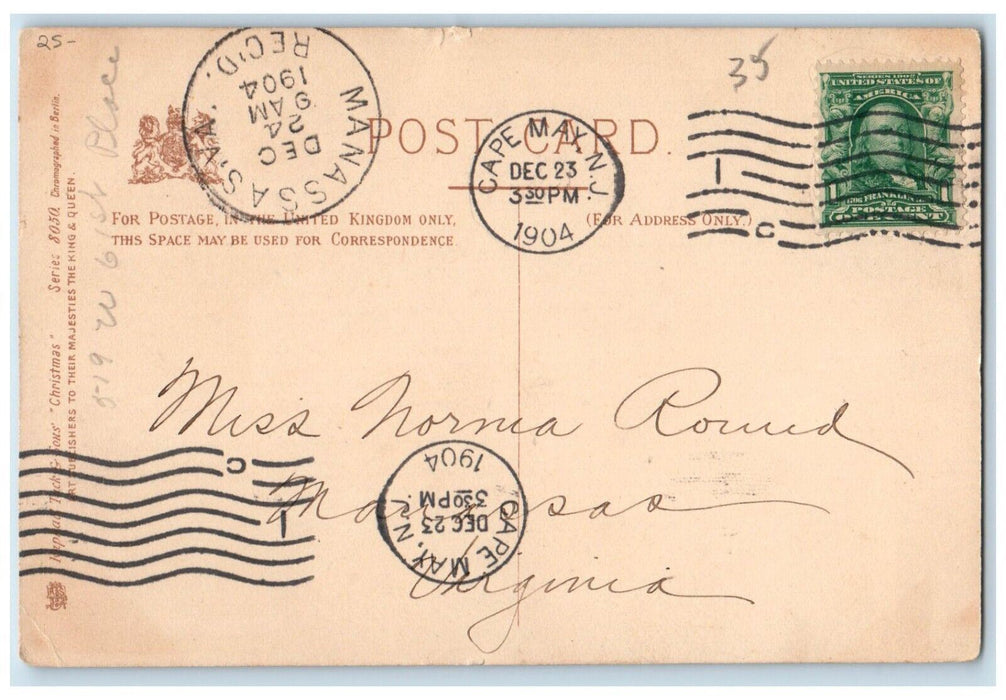 25-
35
MANASSAS, VA.
DEC
24
9 AM
1904
REC'D.
POST CARD.
CAPE MAY, N.J.
DEC 23
3 30 PM
1904
1
C
SERIES 1902
UNITED STATES OF
AMERICA
FRANKLIN
POSTAGE
ONE CENT
FOR POSTAGE, IN THE UNITED KINGDOM ONLY,
THIS SPACE MAY BE USED FOR CORRESPONDENCE.
(FOR ADDRESS ONLY.)
Raphael Tuck & Sons' "Christmas" Series 8050. Chromographed in Berlin.
ART PUBLISHERS TO THEIR MAJESTIES THE KING & QUEEN.
519 W 61st Place
Miss Norma Round
Manassas
Virginia
C
1
CAPE MAY, N.J.
DEC 23
3 30 PM
1904